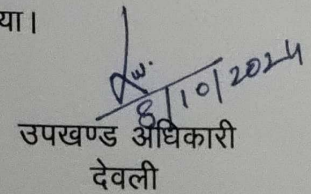 या।
8/10/2024
उपखण्ड अधिकारी
देवली